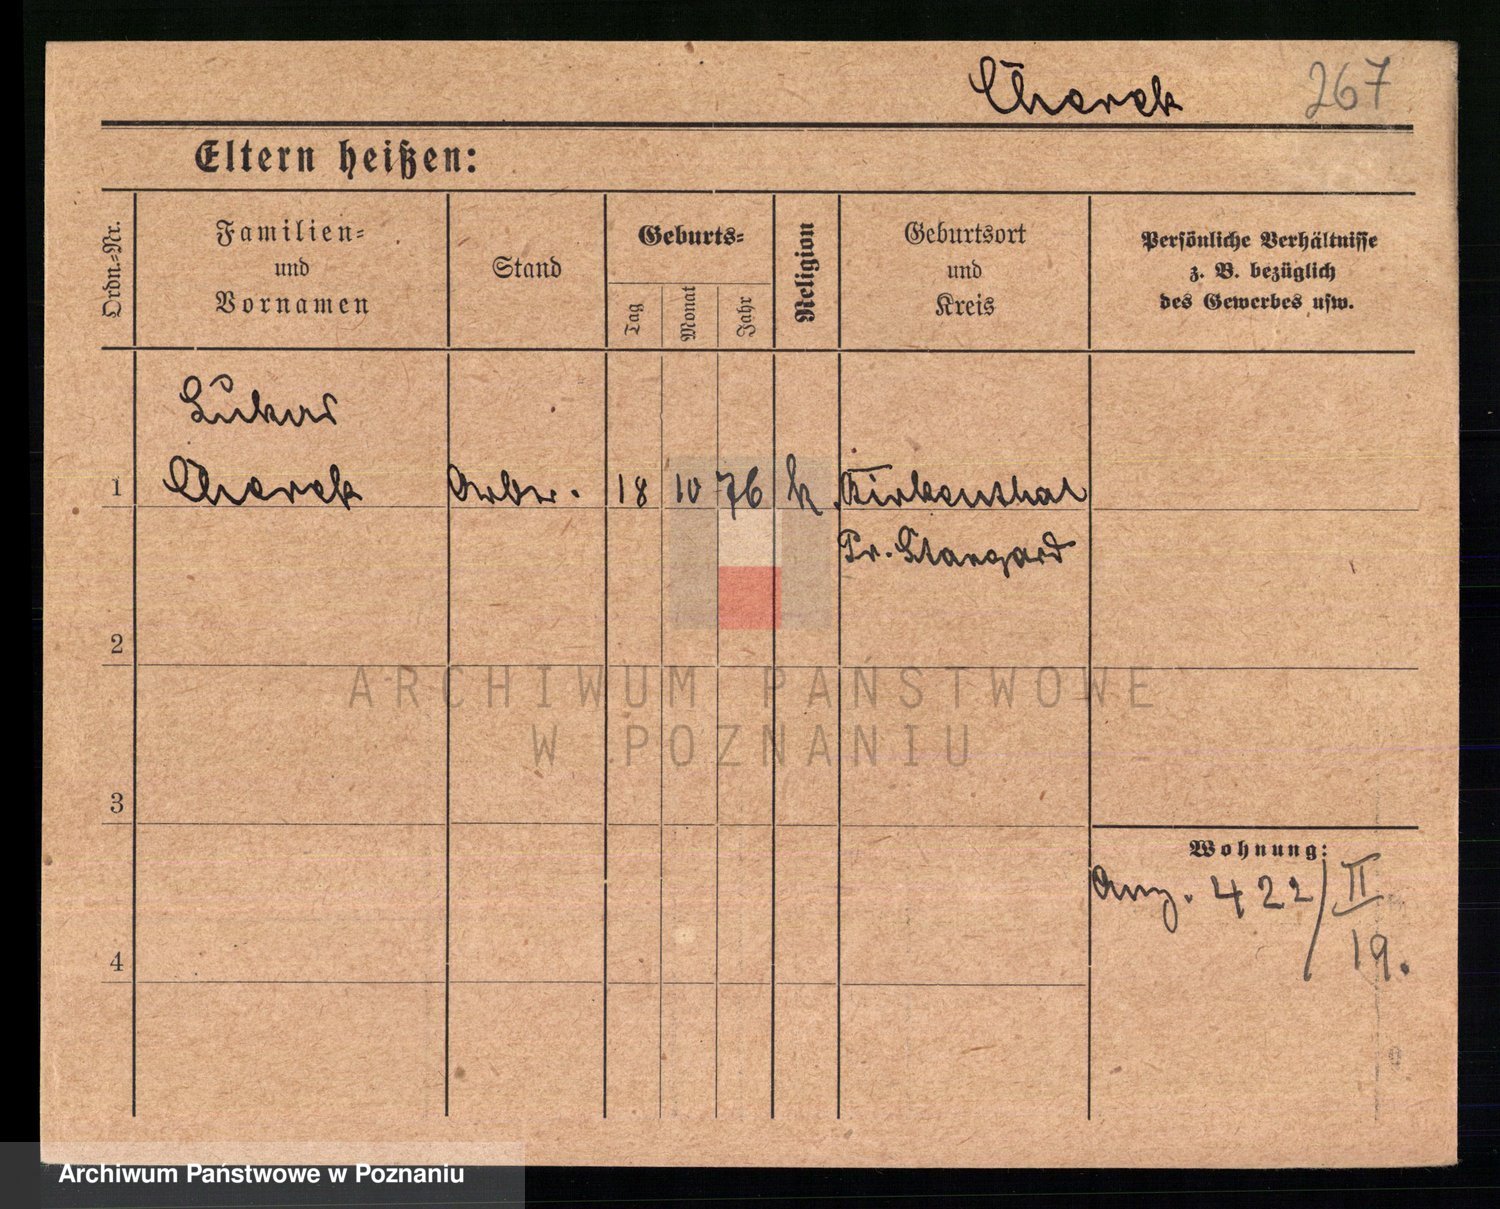 Cherek 267
Eltern heißen:
Ordn.-Nr.
Familien-
und
Vornamen
Stand
Geburts-
Tag
Monat
Jahr
Religion
Geburtsort
und
Kreis
Persönliche Verhältnisse
z. B. bezüglich
des Gewerbes usw.
Lukas
1 Cherek Arbr. 18 10 76 k. Kirkenthal
Pr. Stargard
2
3
4
Wohnung:
Anz. 422/II
19.
ARCHIWUM PAŃSTWOWE
W POZNANIU
Archiwum Państwowe w Poznaniu